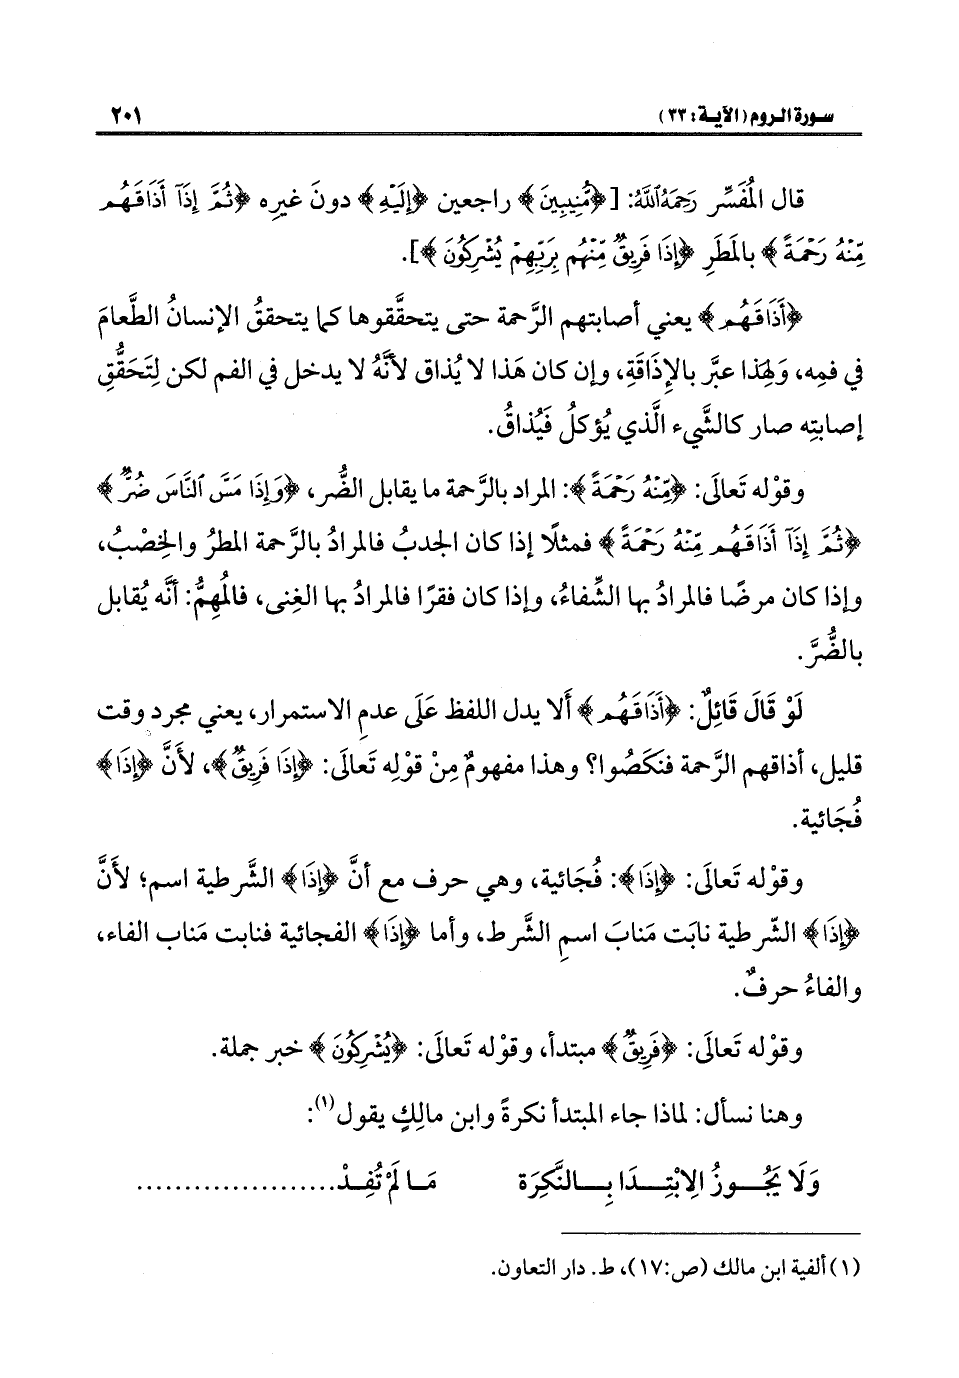 سورة الروم (الآية: ٣٣) ٢٠١
قال المُفَسِّر رَحِمَهُ اللَّهُ: [﴿مُّنِيبِينَ﴾ راجعين ﴿إِلَيْهِ﴾ دونَ غيرِه ﴿ثُمَّ إِذَآ أَذَاقَهُم
مِّنْهُ رَحْمَةً﴾ بالمَطَرِ ﴿إِذَا فَرِيقٌ مِّنْهُم بِرَبِّهِمْ يُشْرِكُونَ﴾].
﴿أَذَاقَهُم﴾ يعني أصابتهم الرَّحمة حتى يتحقَّقوها كما يتحققُ الإنسانُ الطَّعامَ
في فمِه، وَلِهَذا عبَّر بالإِذَاقَةِ، وإن كان هَذا لا يُذاق لأنَّهُ لا يدخل في الفم لكن لِتَحَقُّقِ
إصابتِه صار كالشَّيء الَّذي يُؤكلُ فَيُذاقُ.
وقوْله تَعالَى: ﴿مِّنْهُ رَحْمَةً﴾: المراد بالرَّحمة ما يقابل الضُّر، ﴿وَإِذَا مَسَّ النَّاسَ ضُرٌّ﴾
﴿ثُمَّ إِذَآ أَذَاقَهُم مِّنْهُ رَحْمَةً﴾ فمثلًا إذا كان الجدبُ فالمرادُ بالرَّحمة المطرُ والخِصْبُ،
وإذا كان مرضًا فالمرادُ بها الشِّفاءُ، وإذا كان فقرًا فالمرادُ بها الغِنى، فالمُهِمُّ: أنَّه يُقابل
بالضُّرَّ.
لَوْ قَالَ قَائِلٌ: ﴿أَذَاقَهُم﴾ أَلا يدل اللفظ عَلَى عدمِ الاستمرار، يعني مجرد وقت
قليل، أذاقهم الرَّحمة فنَكَصُوا؟ وهذا مفهومٌ مِنْ قوْلِه تَعالَى: ﴿إِذَا فَرِيقٌ﴾، لأنَّ ﴿إِذَا﴾
فُجَائية.
وقوْله تَعالَى: ﴿إِذَا﴾: فُجائية، وهي حرف مع أنَّ ﴿إِذَا﴾ الشَّرطية اسم؛ لأنَّ
﴿إِذَا﴾ الشّرطية نابَت مَنابَ اسمِ الشَّرط، وأما ﴿إِذَا﴾ الفجائية فنابت مَناب الفاء،
والفاءُ حرفٌ.
وقوْله تَعالَى: ﴿فَرِيقٌ﴾ مبتدأ، وقوْله تَعالَى: ﴿يُشْرِكُونَ﴾ خبر جملة.
وهنا نسأل: لماذا جاء المبتدأ نكرةً وابن مالِكٍ يقول(١):
وَلَا يَجُـــوزُ الِابْتِـــدَا بِـــالنَّكِرَة مَـا لَمْ تُفِـدْ.....................
(١) ألفية ابن مالك (ص:١٧)، ط. دار التعاون.